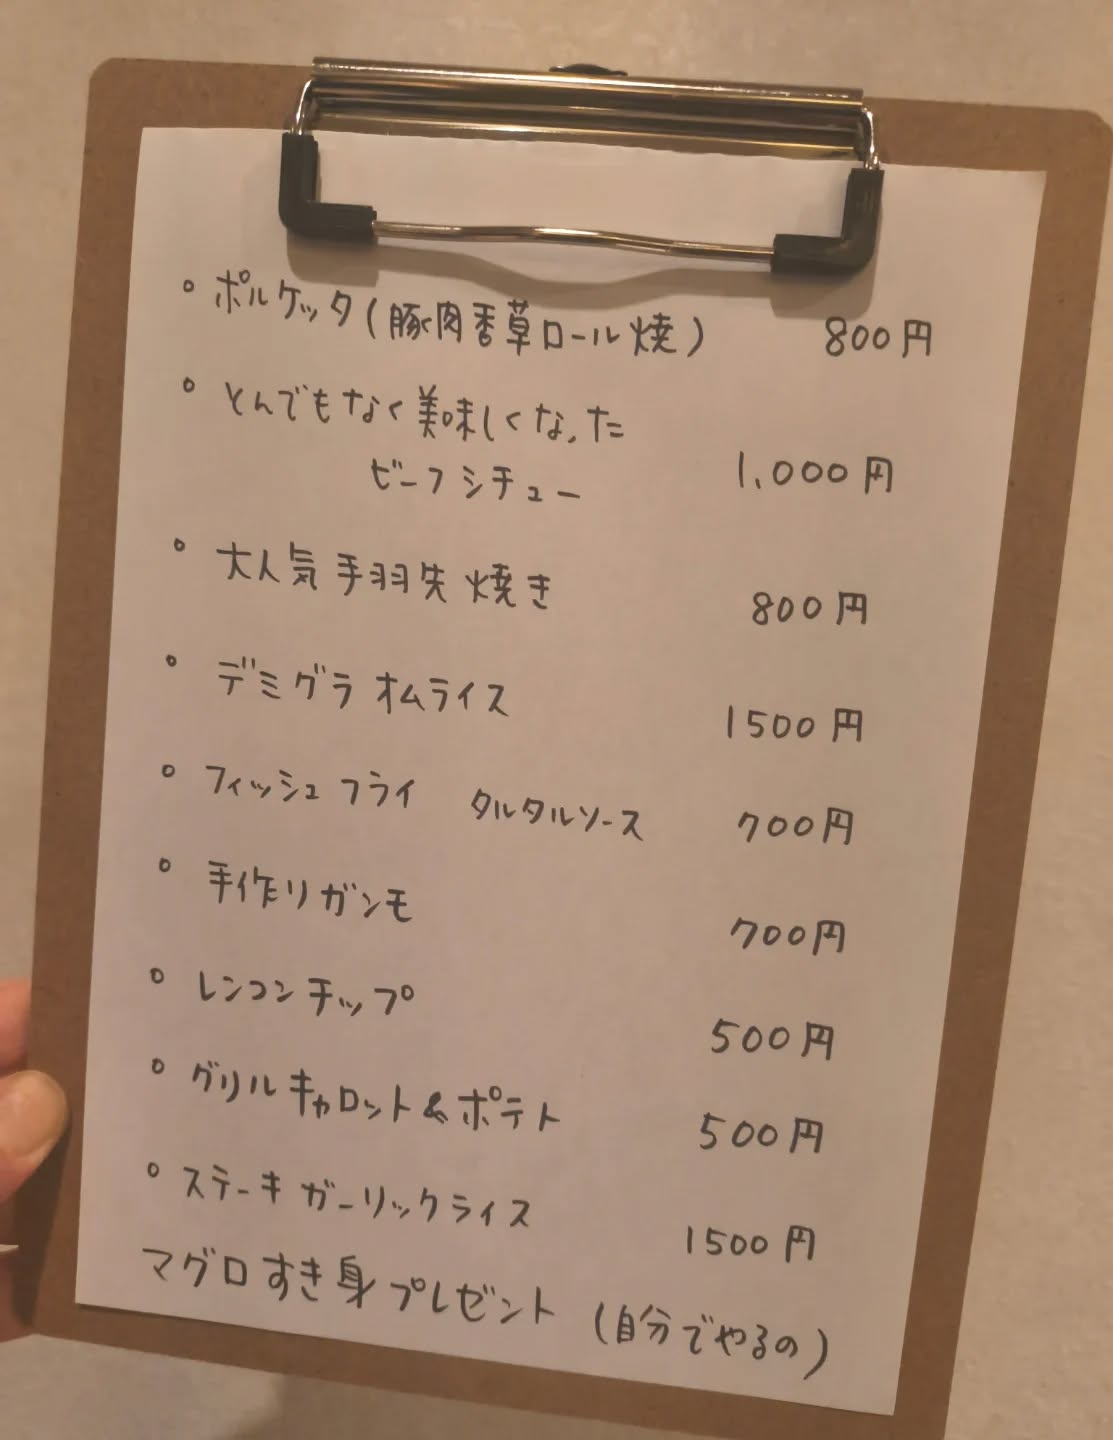 • ポルケッタ(豚肉香草ロール焼) 800円
• とんでもなく美味しくなった
ビーフシチュー 1,000円
• 大人気手羽先焼き 800円
• デミグラオムライス 1500円
• フィッシュフライ タルタルソース 700円
• 手作りガンモ 700円
• レンコンチップ 500円
• グリルキャロット&ポテト 500円
• ステーキガーリックライス 1500円
マグロすき身プレゼント (自分でやるの)